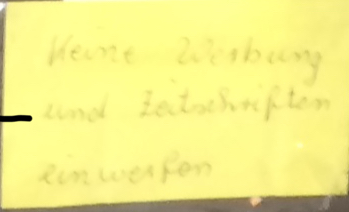 Keine Werbung
und Zeitschriften
einwerfen